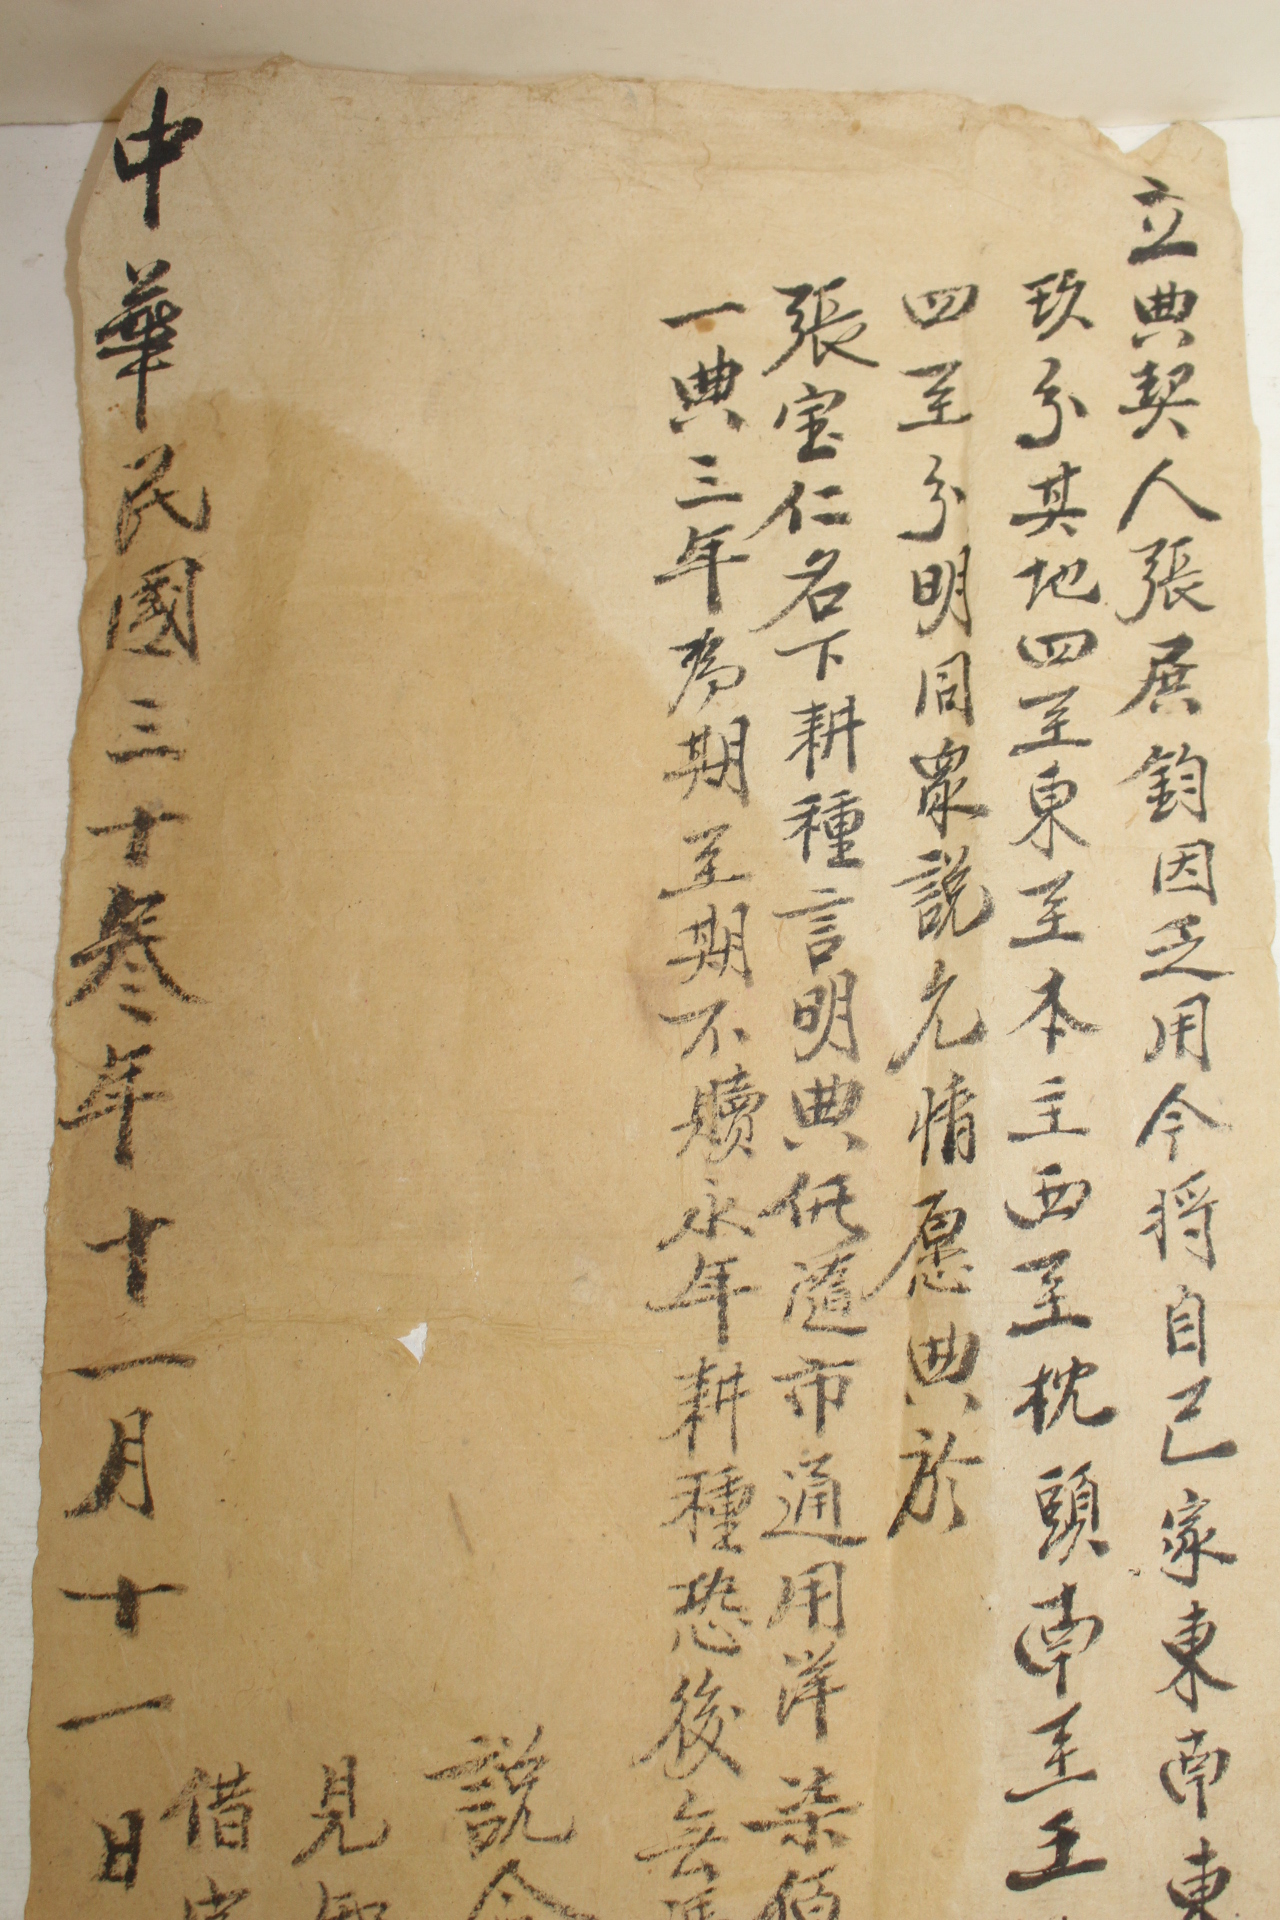 立典契人張展鈞因乏用今将自己家東南東
玖分其地四至東至本主西至枕頭南至王
四至分明同衆説允情愿典於
張宝仁名下耕種言明典價隨市通用洋柒佰
一典三年為期至期不贖永年耕種恐後無憑
説合
見知
借字
中華民國三十叁年十一月十一日